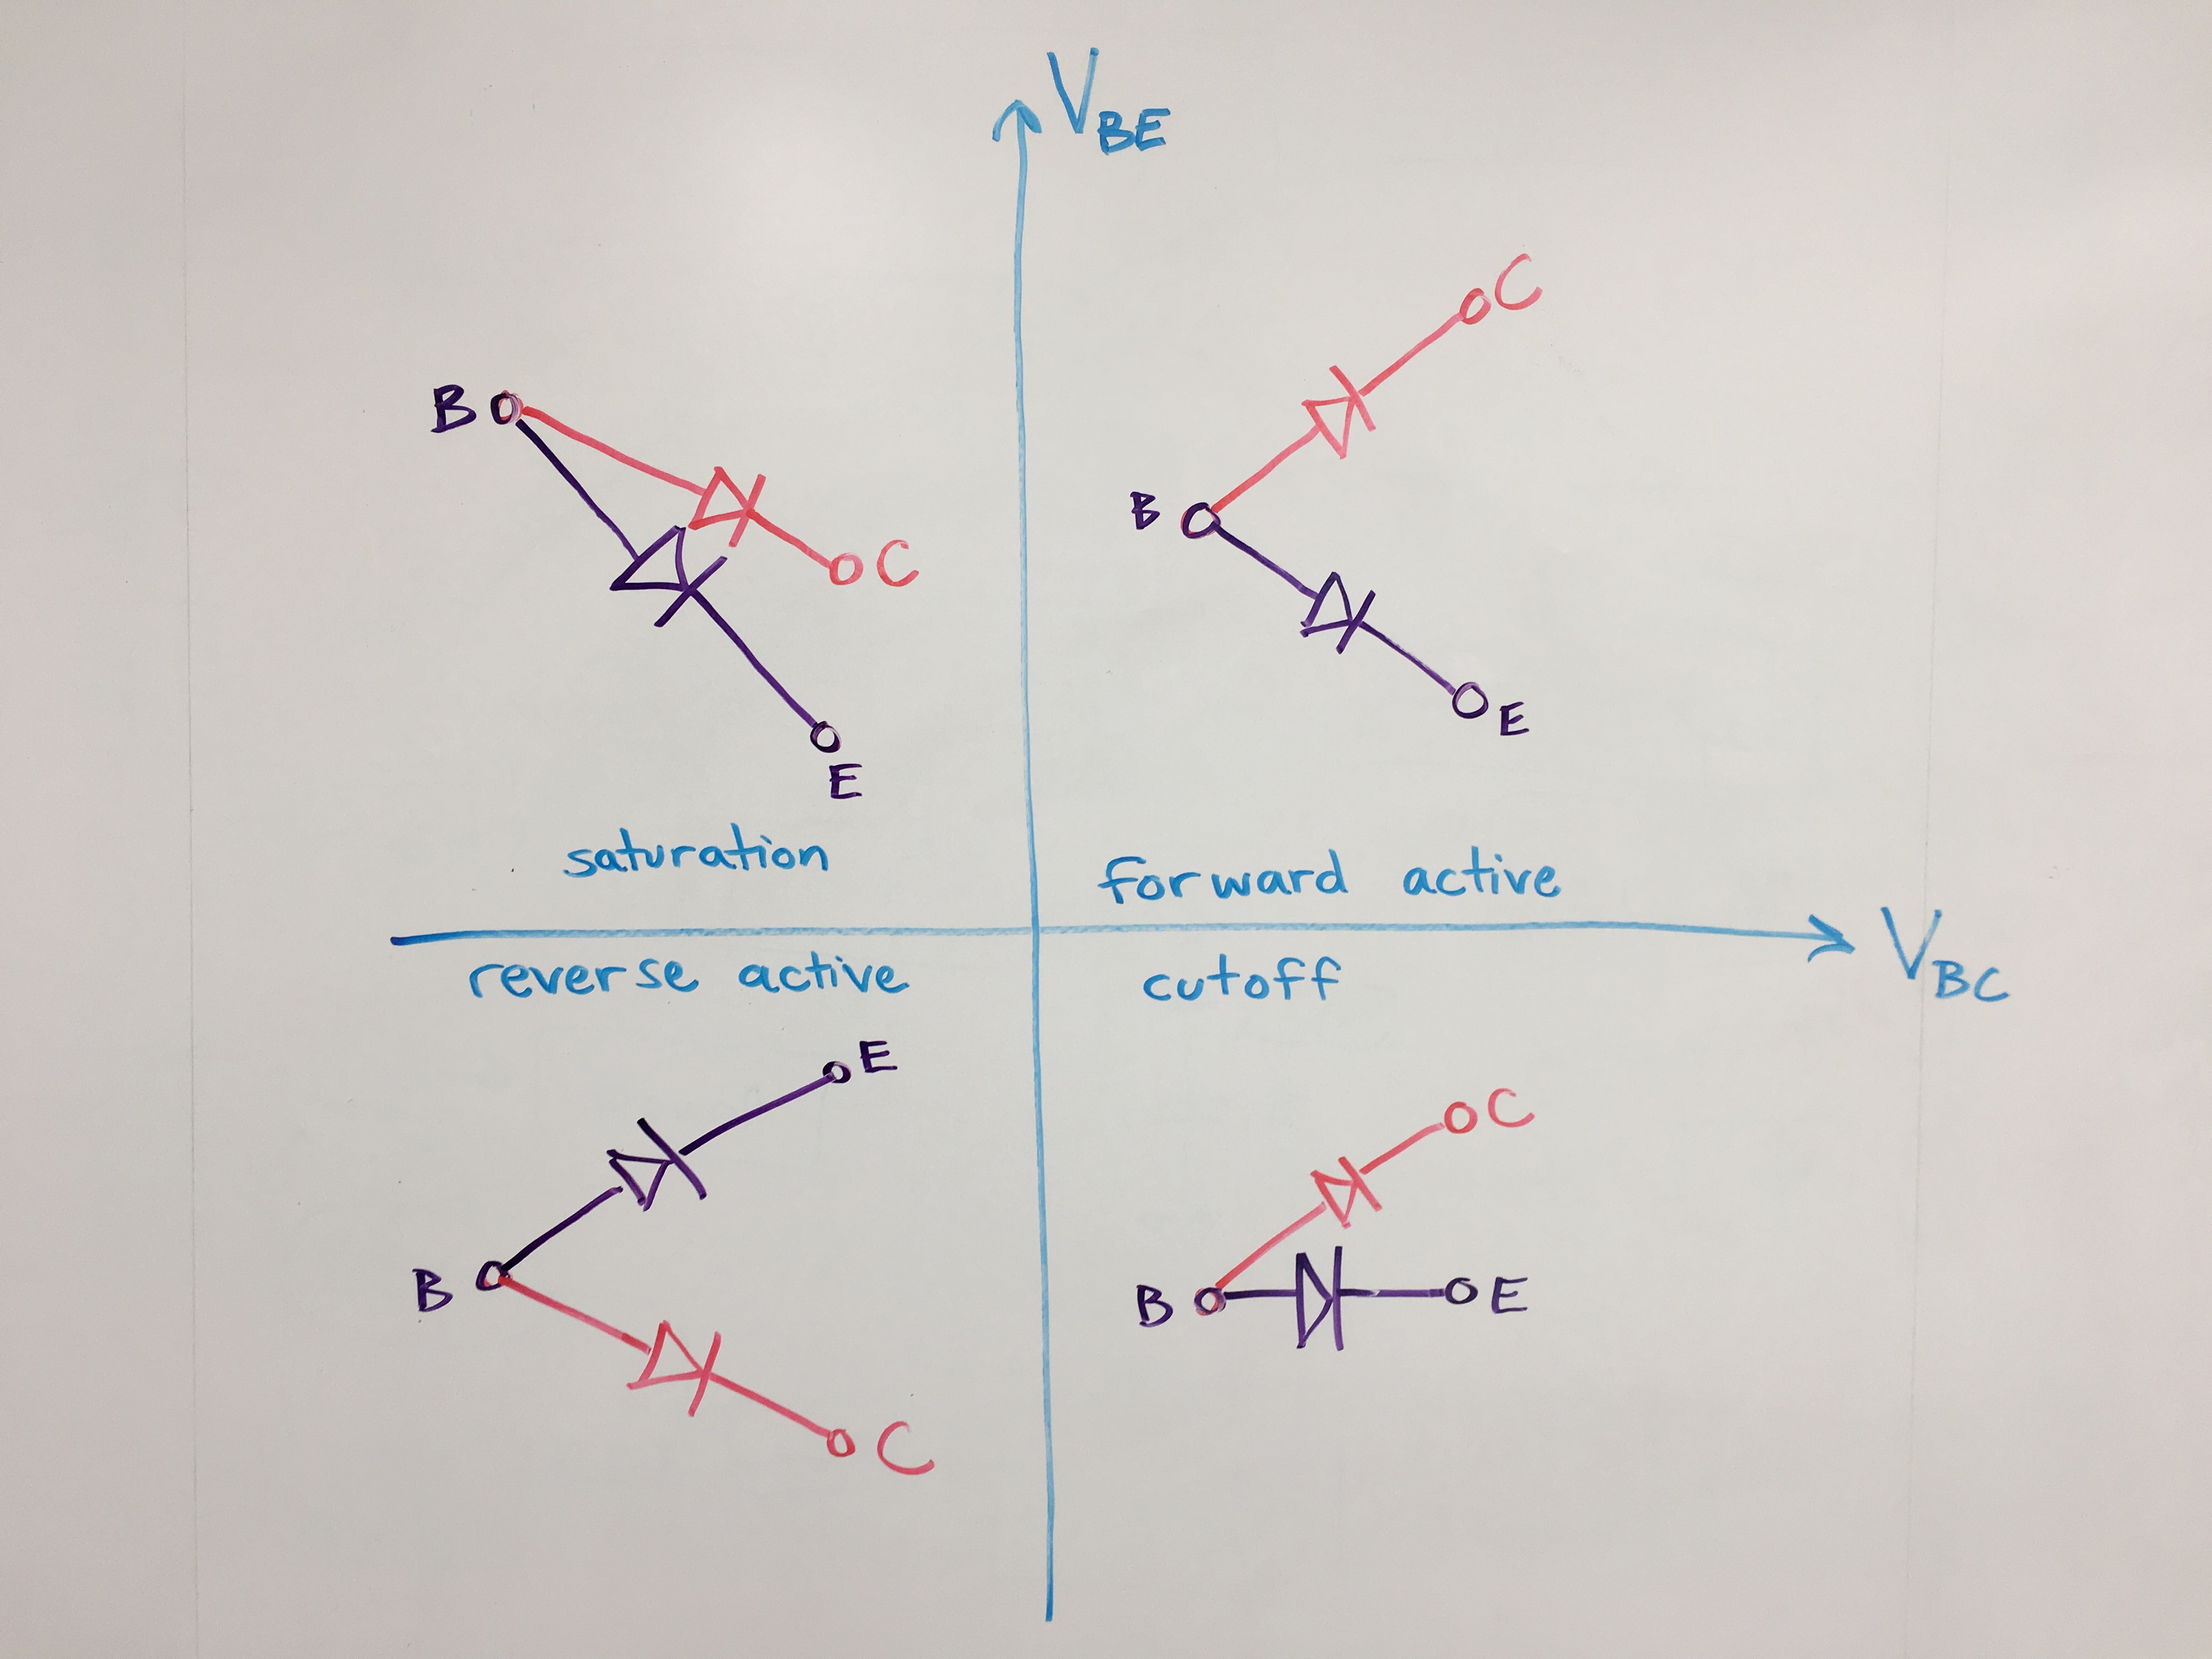 V_BE
C
B
C
B
E
E
saturation
forward active
V_BC
reverse active
cutoff
E
C
B
B
E
C